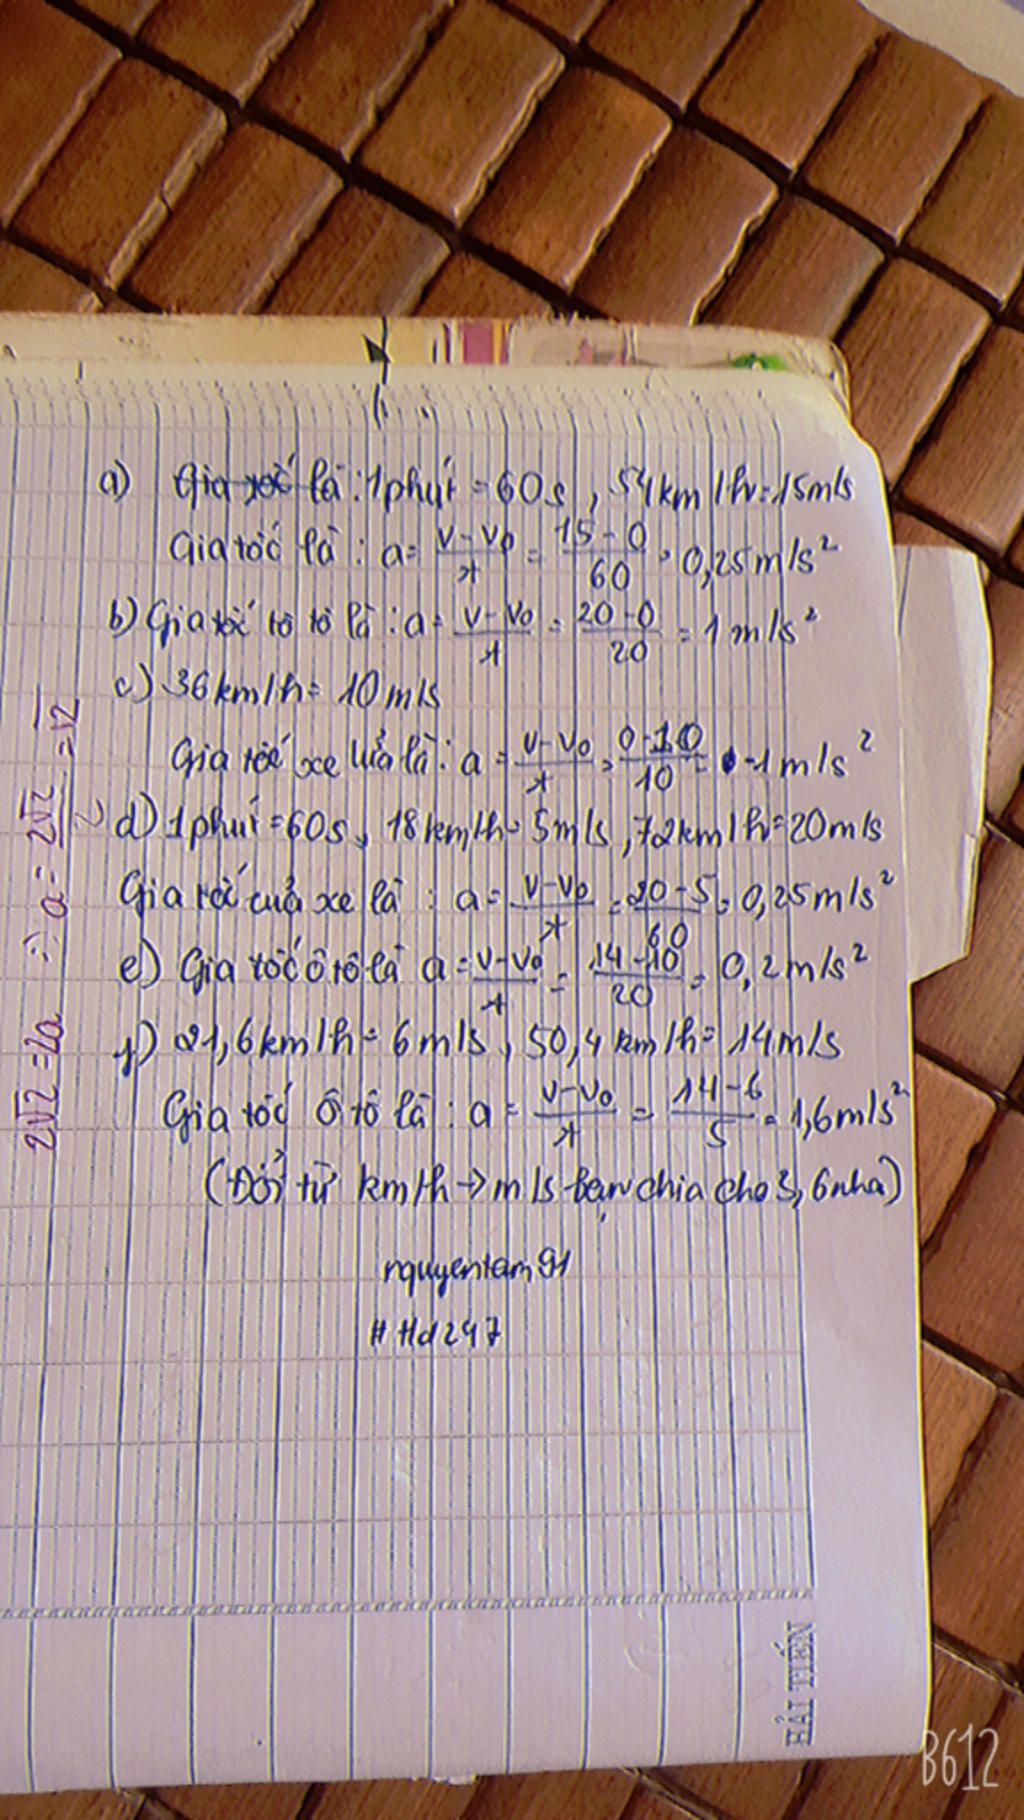 a) Gia tốc là : 1 phút = 60s, 54km/h = 15m/s
Gia tốc là : a = v-v0/t = 15-0/60 = 0,25m/s²
b) Gia tốc ô tô là : a = v-v0/t = 20-0/20 = 1m/s²
c) 36km/h = 10m/s
Gia tốc xe lửa là : a = v-v0/t = 0-10/10 = -1m/s²
d) 1phút = 60s, 18km/h = 5m/s, 72km/h = 20m/s
Gia tốc của xe là : a = v-v0/t = 20-5/60 = 0,25m/s²
e) Gia tốc ô tô là a = v-v0/t = 14-10/20 = 0,2m/s²
f) 21,6km/h = 6m/s, 50,4km/h = 14m/s
Gia tốc ô tô là : a = v-v0/t = 14-6/5 = 1,6m/s²
(Đổi từ km/h → m/s bạn chia cho 3,6 nha)
nguyentam91
# Hd247
2√2 = 2a => a = 2√2/2 = √2
HẢI TIẾN
B612